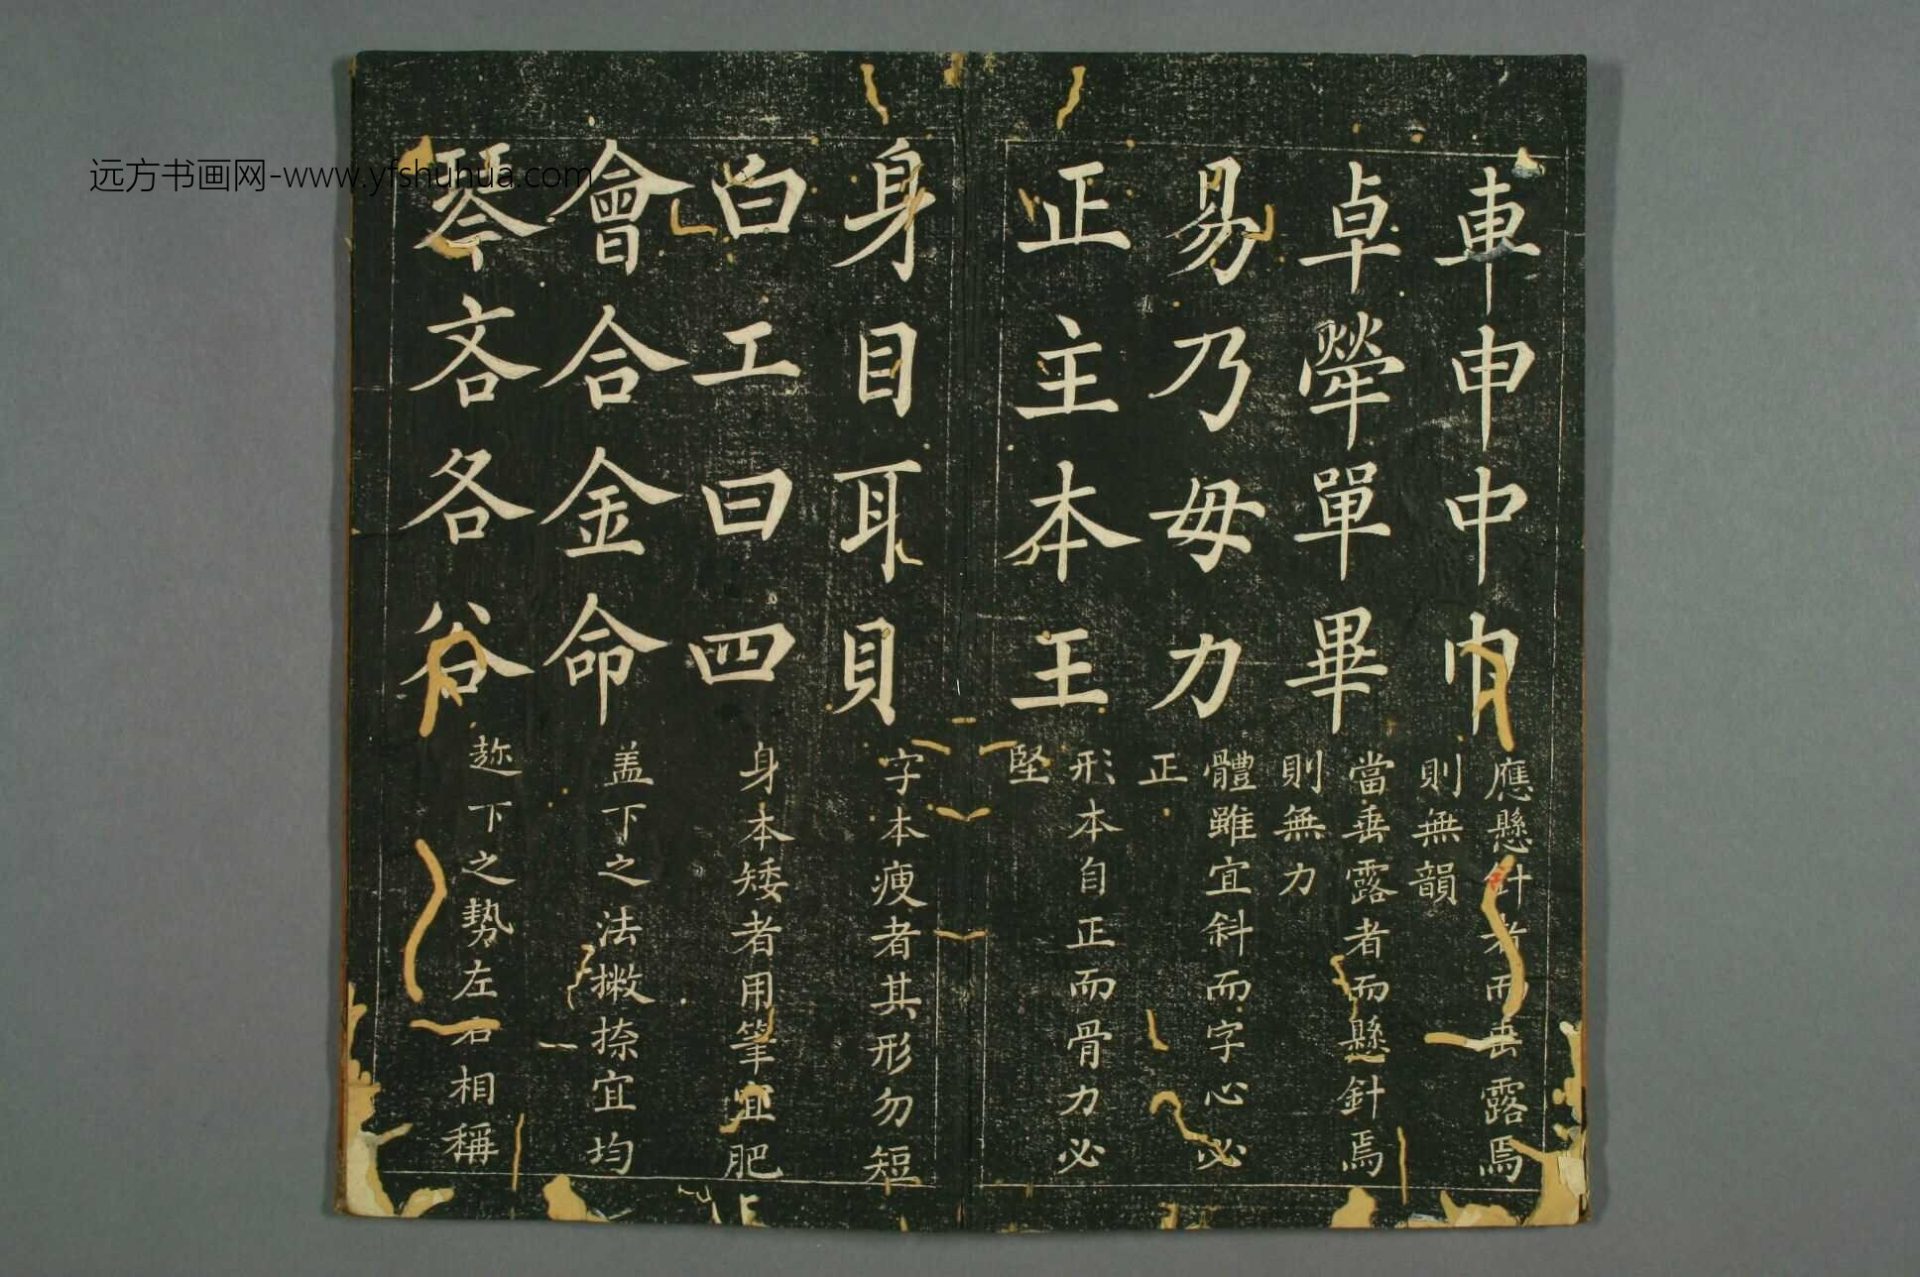 远方书画网-www.yfshuhua.com
車申中巾
應懸針者而垂露焉
則無韻
卓犖單畢
當垂露者而懸針焉
則無力
易乃毋力
體雖宜斜而字心必
正
正主本王
形本自正而骨力必
堅
身目耳貝
字本瘦者其形勿短
白工曰四
身本矮者用筆宜肥
會合金命
盖下之法撇捺宜均
琴吝各谷
趂下之勢左右相稱